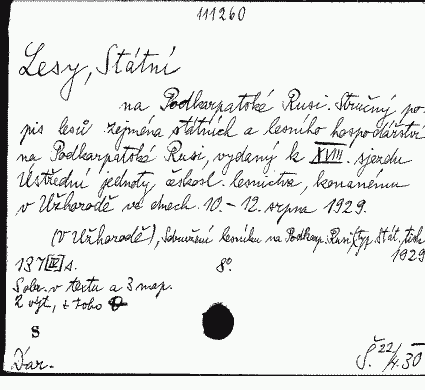 111260
Lesy, Státní
na Podkarpatské Rusi. Stručný po-
pis lesů zejména státních a lesního hospodářství
na Podkarpatské Rusi, vydaný k XVIII. sjezdu
Ústřední jednoty českosl. lesnictva, konanému
v Užhorodě ve dnech 10.-12. srpna 1929.
(V Užhorodě), Sdružení lesníků na Podkarp. Rusi (typ. Stát. tisk.
1929
137 s. 8°.
S obr. v textu a 3 map.
2 výt., z toho
8
Dar. Š. 22/4.30